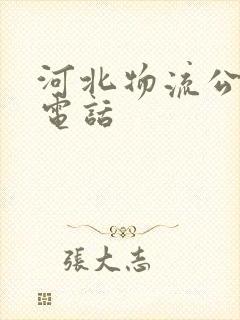 河北物流公
電話
張大志